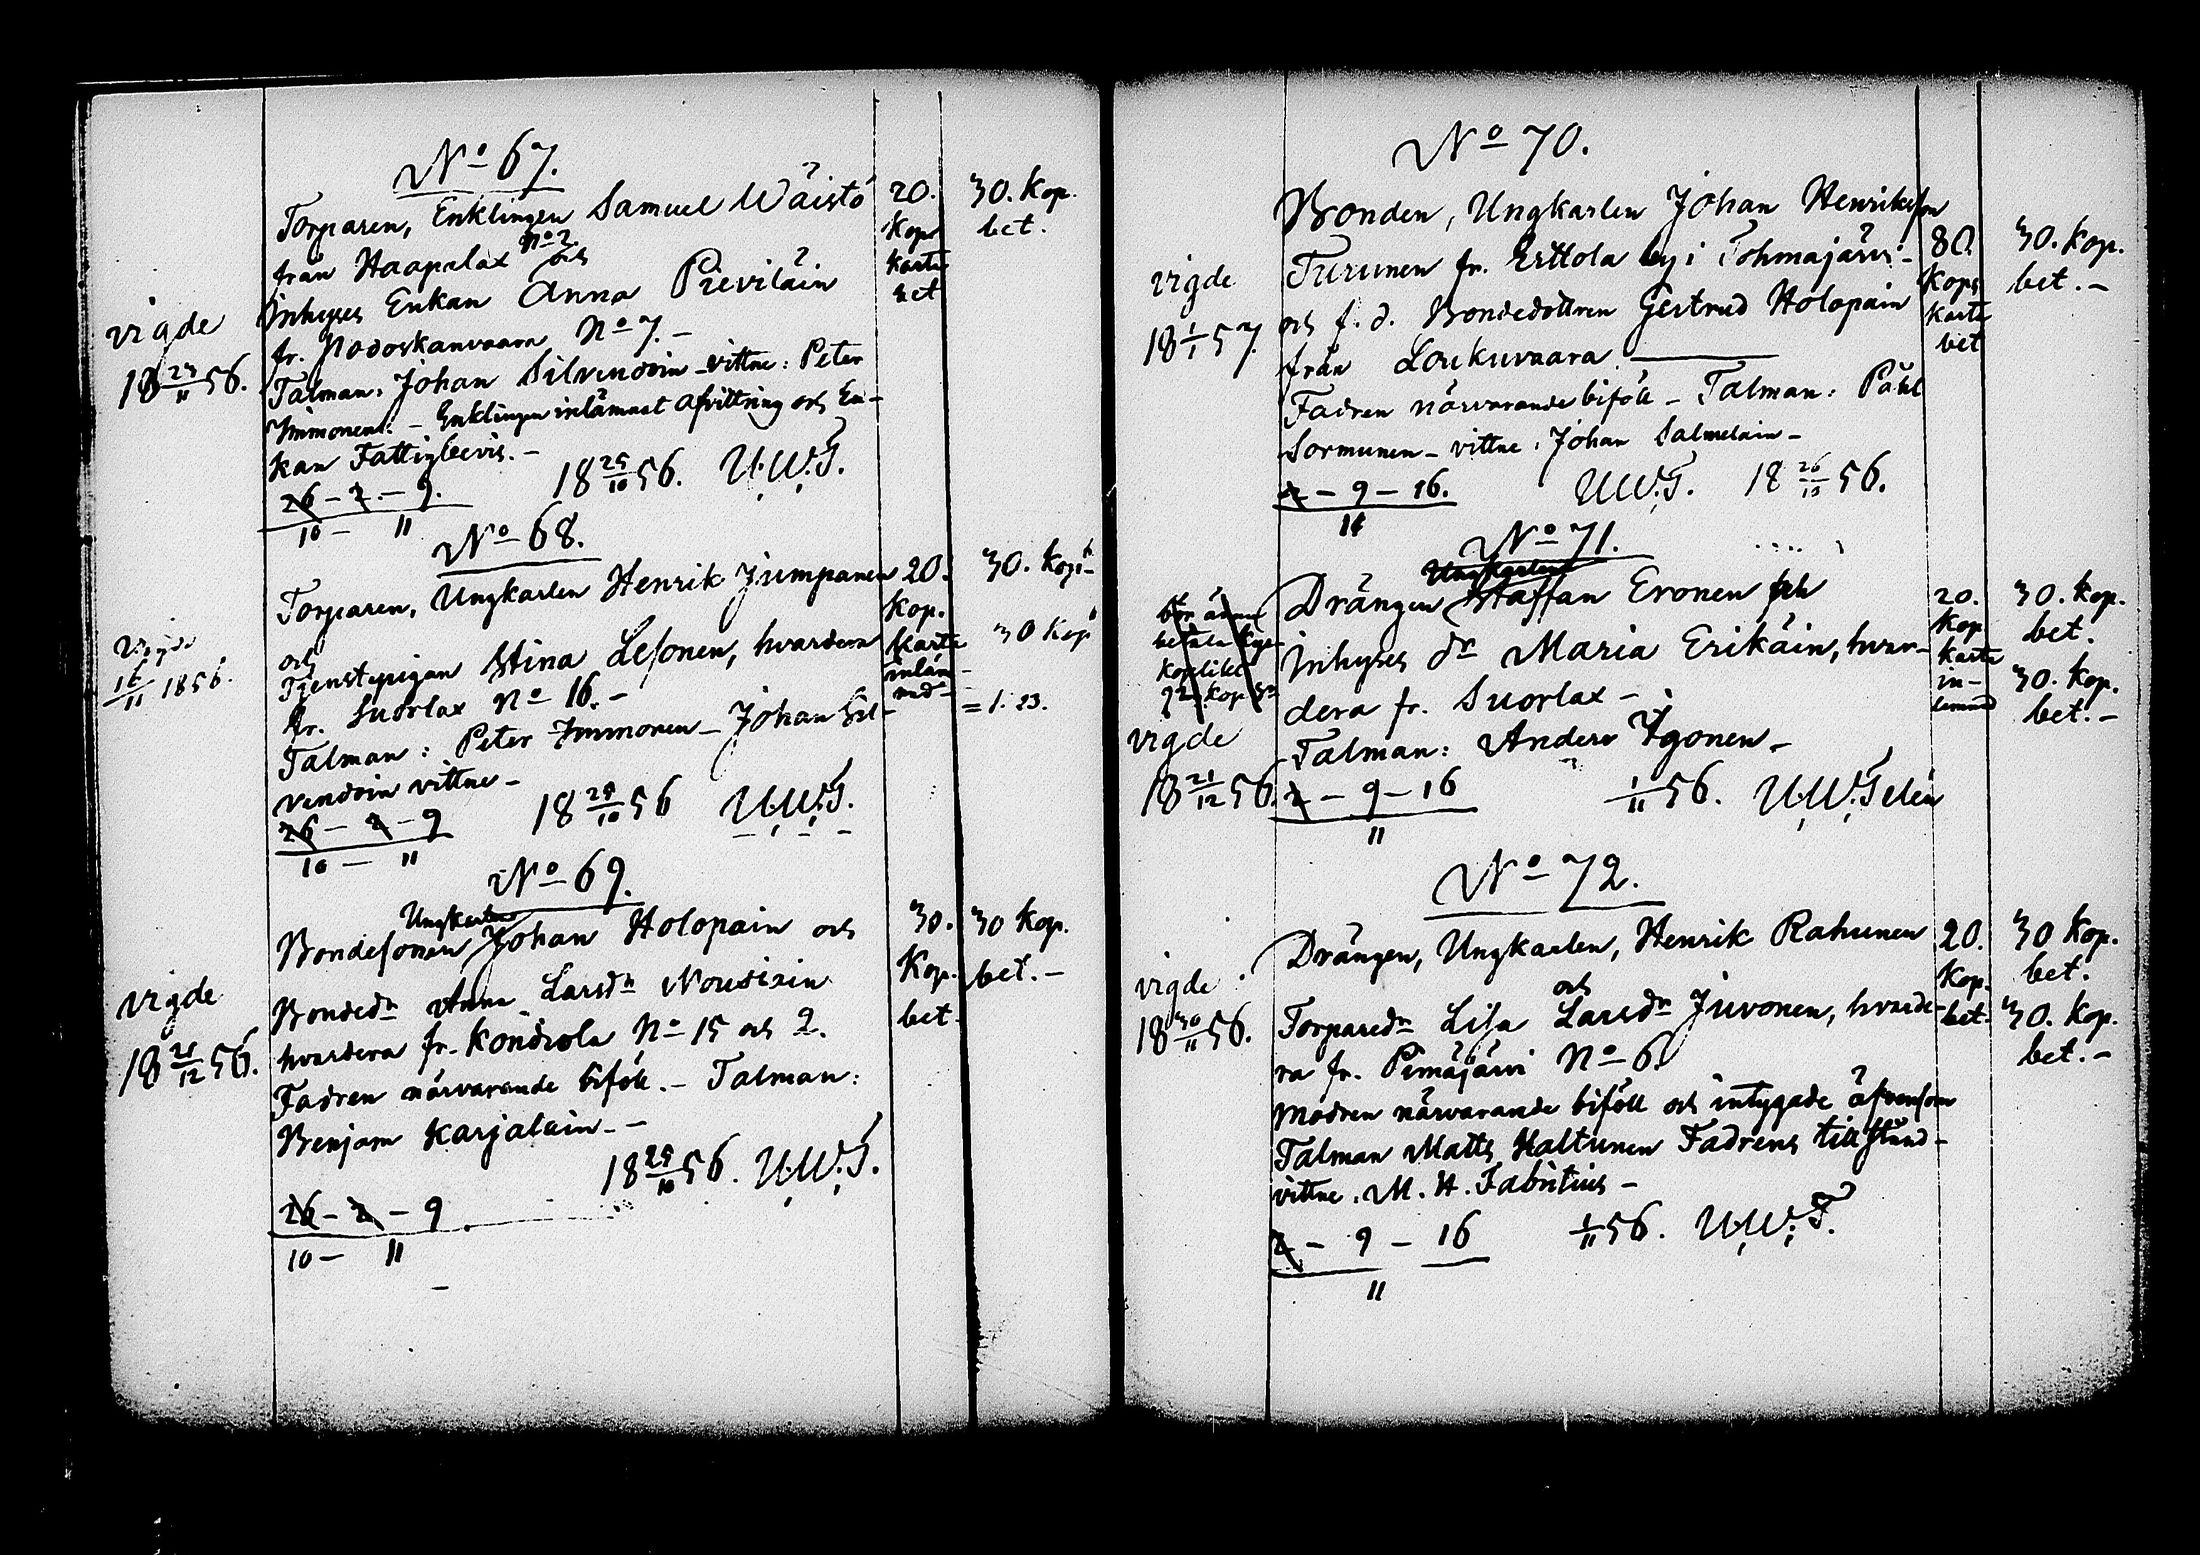 No 67.
Torparen, Enklingen Samuel Wäistö
från Haapalax No 2 och
Inhyses Enkan Anna Pieviläin
fr. Podoskanvaara No 7. –
Talman: Johan Silvendoin – vittne: Peter
Immonen: – Enklingen inlämnat afvittring och En-
kan Fattigbevis. –
18 25/10 56. U.W.T.
26 – 2. – 9.
10 – 11
vigde
18 23/11 56.
20.
Kop.
karta
bet
30. Kop.
bet.
No 68.
Torparen, Ungkarlen Henrik Jumpanen
och
Tjenstepigan Stina Lesonen, hvardera
fr. Suorlax No 16. –
Talman: Peter Immonen – Johan Sil-
vendoin vittne –
18 25/10 56 U.W.T.
26 – 2 – 9
10 – 11
vigde
16/11 1856.
20.
Kop.
Karta
inläm-
nad
30. Kop
30 Kop
= 1. 23.
No 69.
Ungkarlen
Bondesonen Johan Holopain och
Bondedn Anna Larsdn Nousiain
hvardera fr. Kondrola No 15 och 2.
Fadren närvarande biföll. – Talman:
Benjam Karjalain. –
18 25/10 56. U.W.T.
26 – 2 – 9
10 – 11
vigde
18 21/12 56.
30.
Kop.
bet.
30 Kop.
bet. –
No 70.
Bonden, Ungkarlen Johan Henriksson
Turunen fr. Erttola by i Tohmajärvi –
och f. d. Bondedottren Gertrud Holopain
från Loukuvaara
Fadren närvarande biföll – Talman: Påhl
Sormunen – vittne: Johan Salmelain –
U.W.T. 18 26/10 56.
2 – 9 – 16.
11
vigde
18 1/1 57.
80.
Kops
karta
bet
30. Kop.
bet. –
No 71.
Ungkarlen
Drängen Staffan Eronen och
Inhyses dr Maria Erikäin, hvar-
dera fr. Suorlax –
Talman: Anders Igonen –
1/11 56. U.W.Telén
2 – 9 – 16
11
bör ännu
betala
vigde
18 21/12 56.
20.
Kop
karta
in-
lemnad
30. Kop.
bet.
30. Kop.
bet. –
No 72.
Drängen, Ungkarlen, Henrik Rahunen
och
Torparedn Lisa Larsdn Juvonen, hvarde-
ra fr. Pimäjärvi No 6.
Modren närvarande biföll och intygade äfvensom
Talman Matts Haltunen Fadrens tillstånd –
vittne. M. H. Fabritius –
1/11 56. U.W.T.
2 – 9 – 16
11
vigde
18 30/11 56.
20.
Kop.
bet.
30 Kop.
bet.
30. Kop.
bet. –